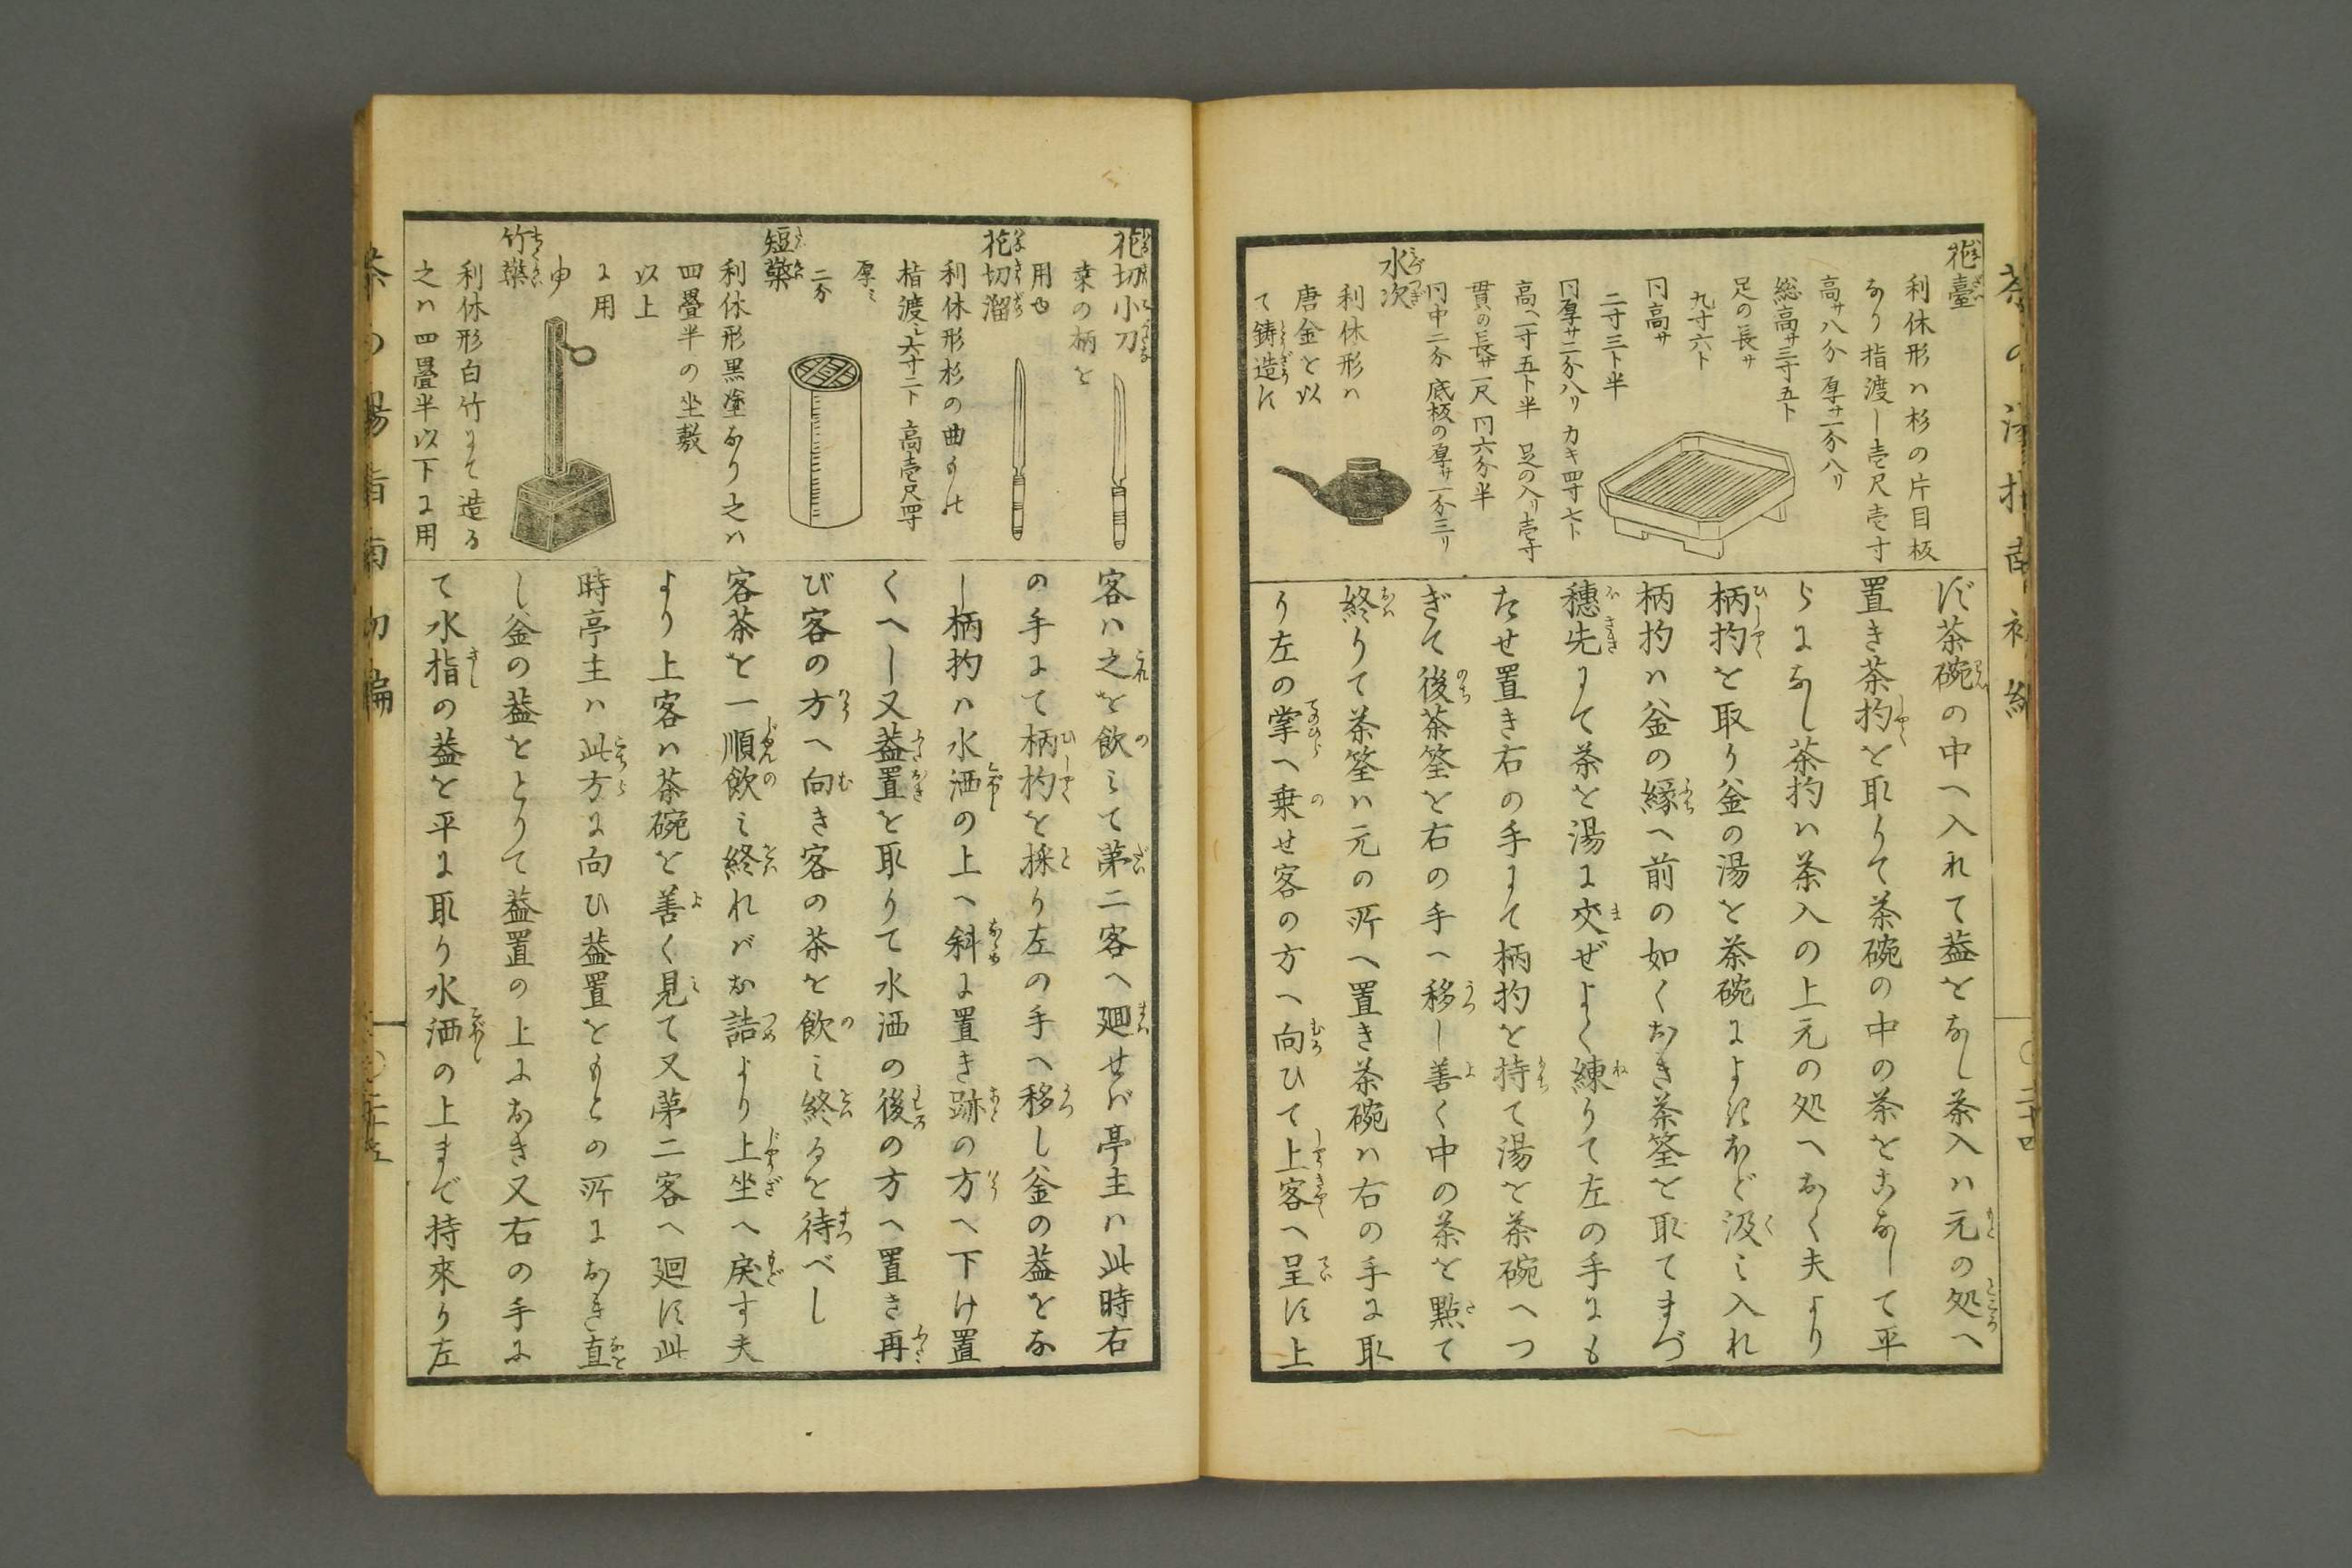 花臺
利休形ハ杉の片目板
なり指渡し壱尺壱寸
高サ八分厚サ一分八リ
総高サ三寸五ト
足の長サ
九寸六ト
同高サ
二寸三ト半
同厚サ二分八リ カキ四寸七ト
高ヘ一寸五ト半 足の入リ壱寸
貫の長サ一尺 同六分半
同中二分 底板の厚サ一分三リ
水次
利休形ハ
唐金を以
て鋳造す
ず茶碗の中へ入れて葢をなし茶入ハ元の処へ
置き茶杓を取りて茶碗の中の茶をこなして平
らまなし茶杓ハ茶入の上元の処へおく夫より
柄杓を取り釜の湯を茶碗によきほど汲ミ入れ
柄杓ハ釜の縁へ前の如くおき茶筌を取てまづ
穂先にて茶を湯に交ぜよく練りて左の手にも
たせ置き右の手にて柄杓を持て湯を茶碗へつ
ぎて後茶筌を右の手へ移し善く中の茶を點て
終りて茶筌ハ元の所へ置き茶碗ハ右の手に取
り左の掌へ乗せ客の方へ向ひて上客へ呈す上
花切小刀
桒の柄を
用ゆ
花切溜
利休形杉の曲もの
指渡シ六寸二ト 高壱尺四寸
厚ミ
二分
短檠
利休形黒塗なり之ハ
四疊半の坐敷
以上
に用
ゆ
竹檠
利休形白竹にて造る
之ハ四畳半以下に用
客ハ之を飲ミて第二客へ廻せバ亭主ハ此時右
の手にて柄杓を採り左の手へ移し釜の葢をな
し柄杓ハ水洒の上へ斜に置き跡の方へ下け置
くへし又葢置を取りて水洒の後の方へ置き再
び客の方へ向き客の茶を飲ミ終るを待べし
客茶を一順飲ミ終れバお詰より上坐へ戻す夫
より上客ハ茶碗を善く見て又第二客へ廻す此
時亭主ハ此方に向ひ葢置をもとの所におき直
し釜の葢をとりて葢置の上におき又右の手に
て水指の葢を平に取り水洒の上まで持來り左
茶の湯指南初編